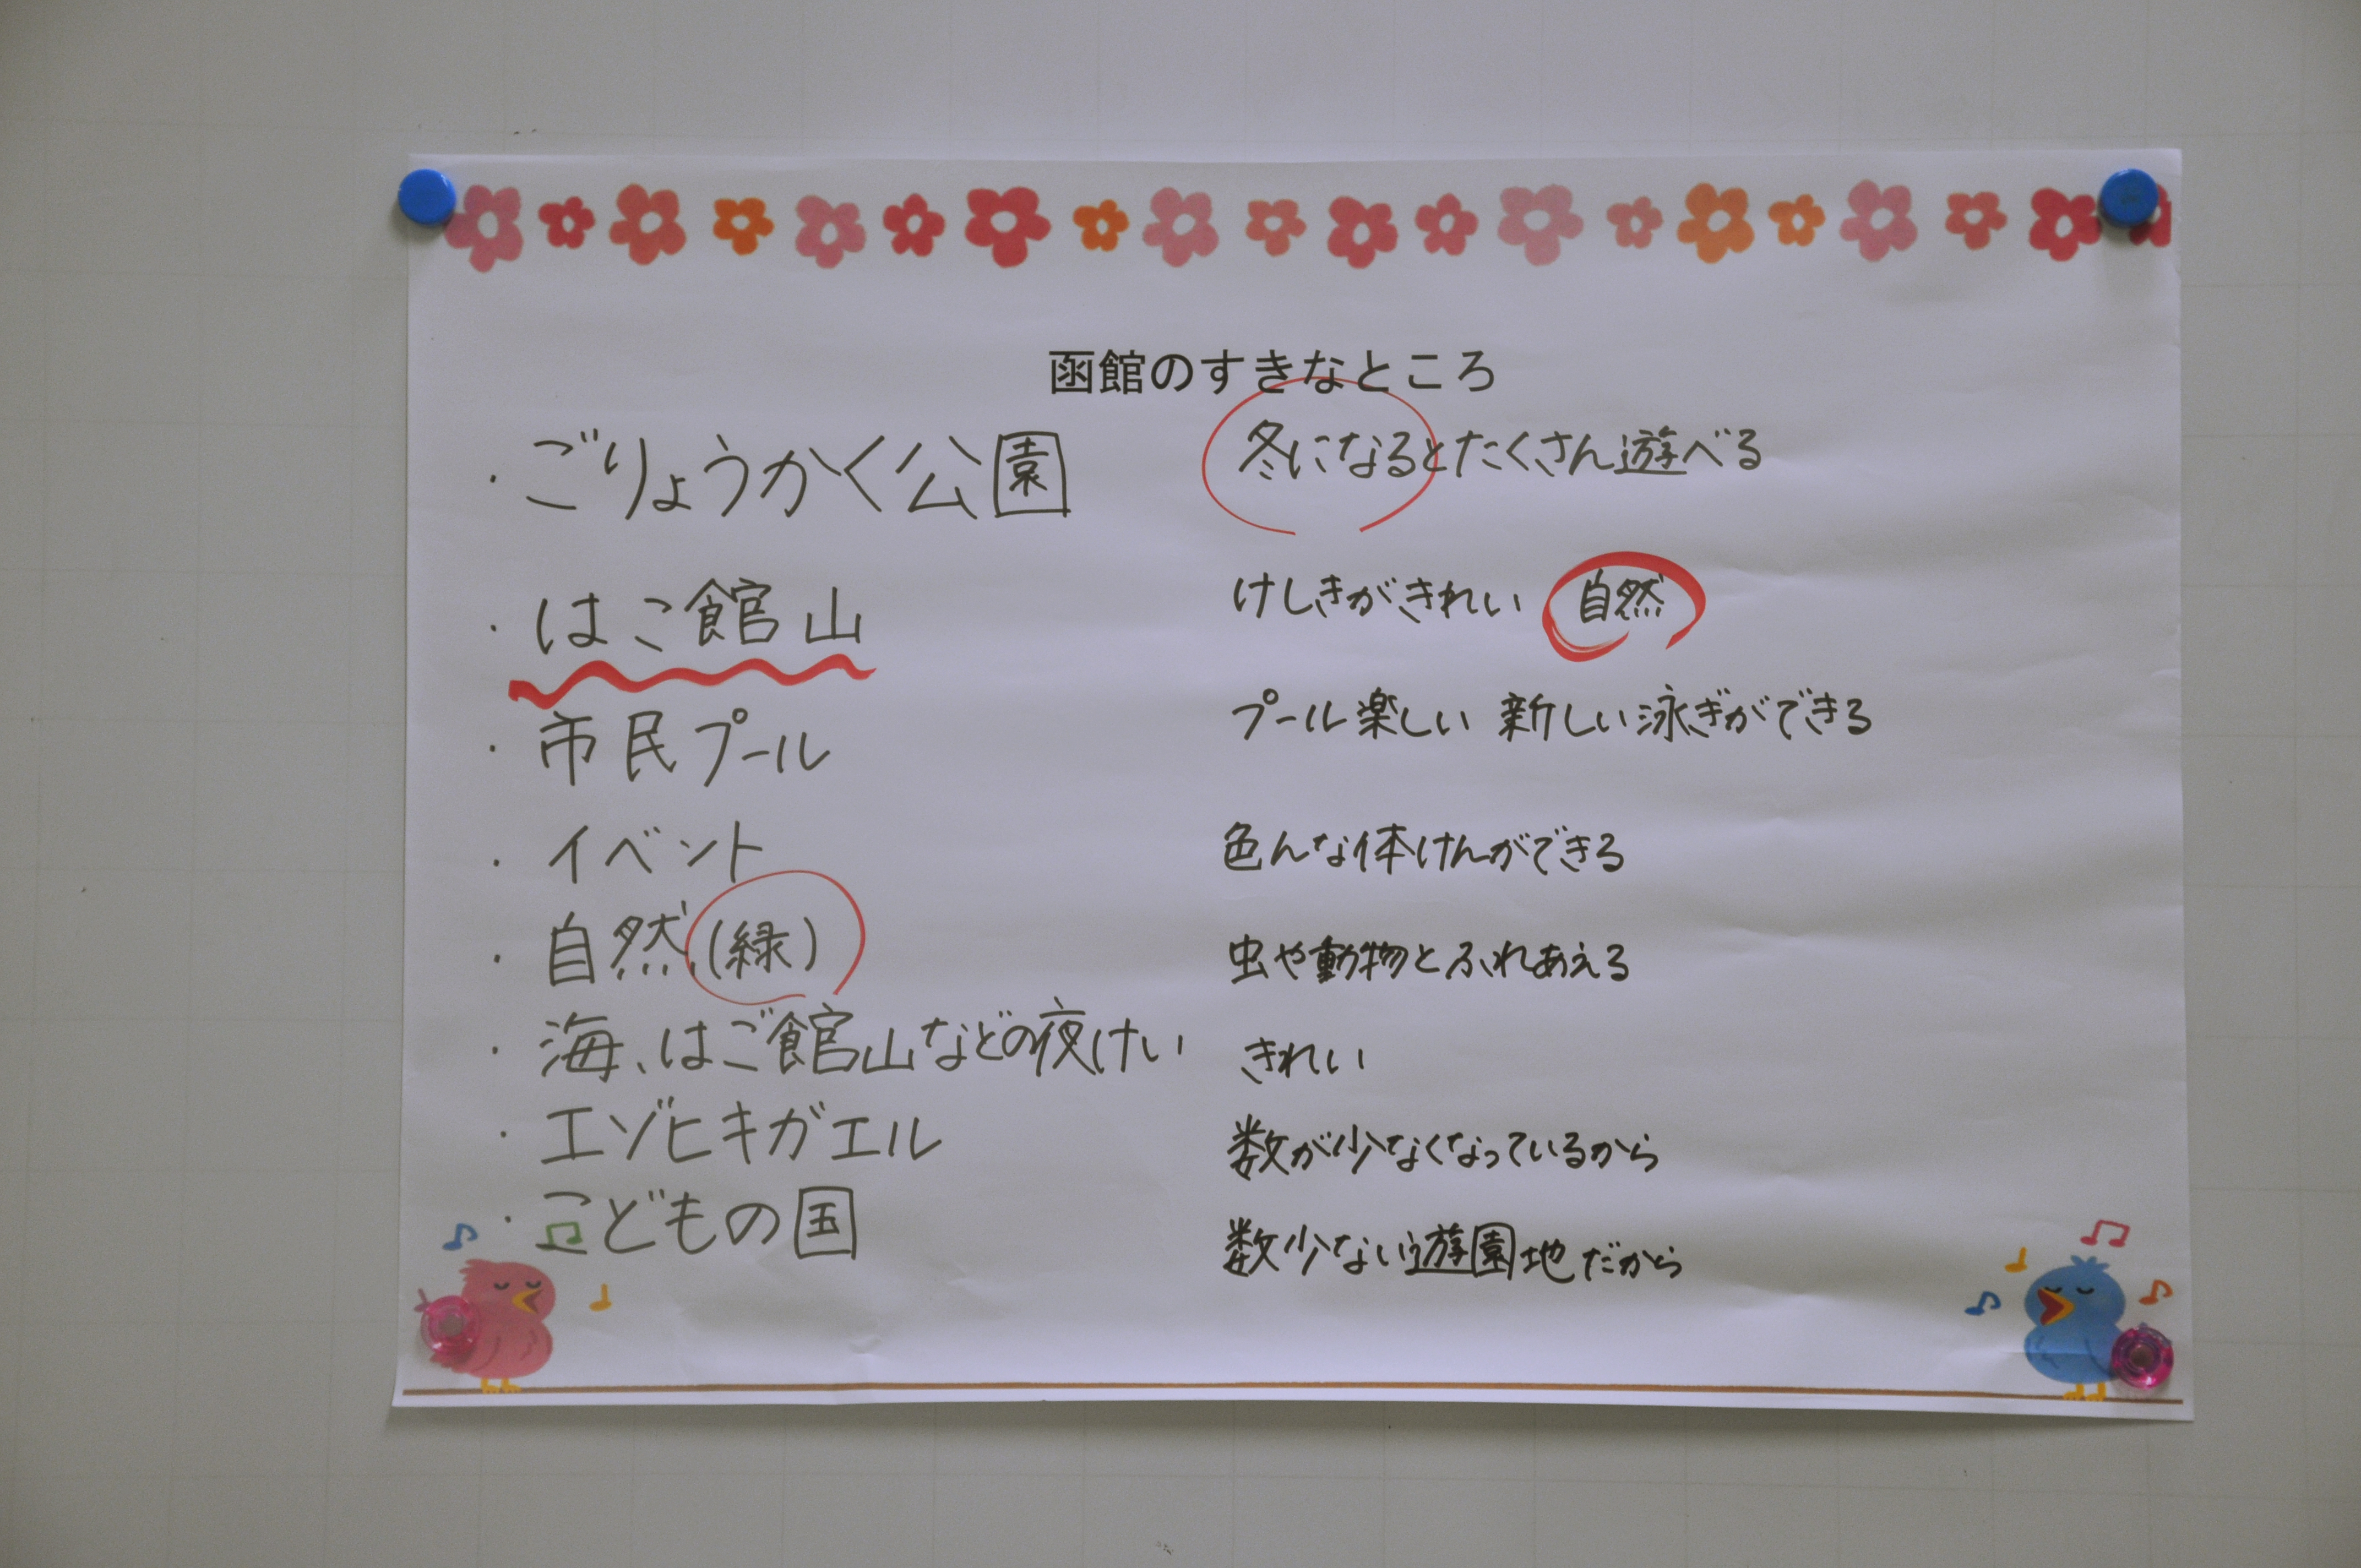 函館のすきなところ
・ごりょうかく公園 冬になるとたくさん遊べる
・はこ館山 けしきがきれい 自然
・市民プール プール楽しい 新しい泳ぎができる
・イベント 色んな体けんができる
・自然(緑) 虫や動物とふれあえる
・海、はご館山などの夜けい きれい
・エゾヒキガエル 数が少なくなっているから
・こどもの国 数少ない遊園地だから